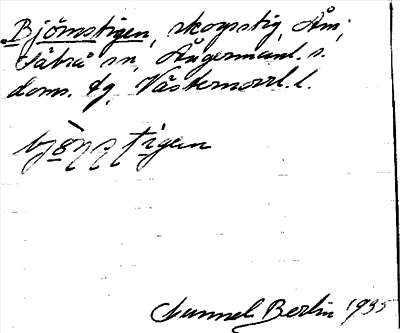 Björnstigen, skogsstig, Åm;
Säbrå sn, Ångermanl. s.
doms. tg, Västernorrl. l.
bjö̀ṇṣtigen
Gunnel Berlin 1935